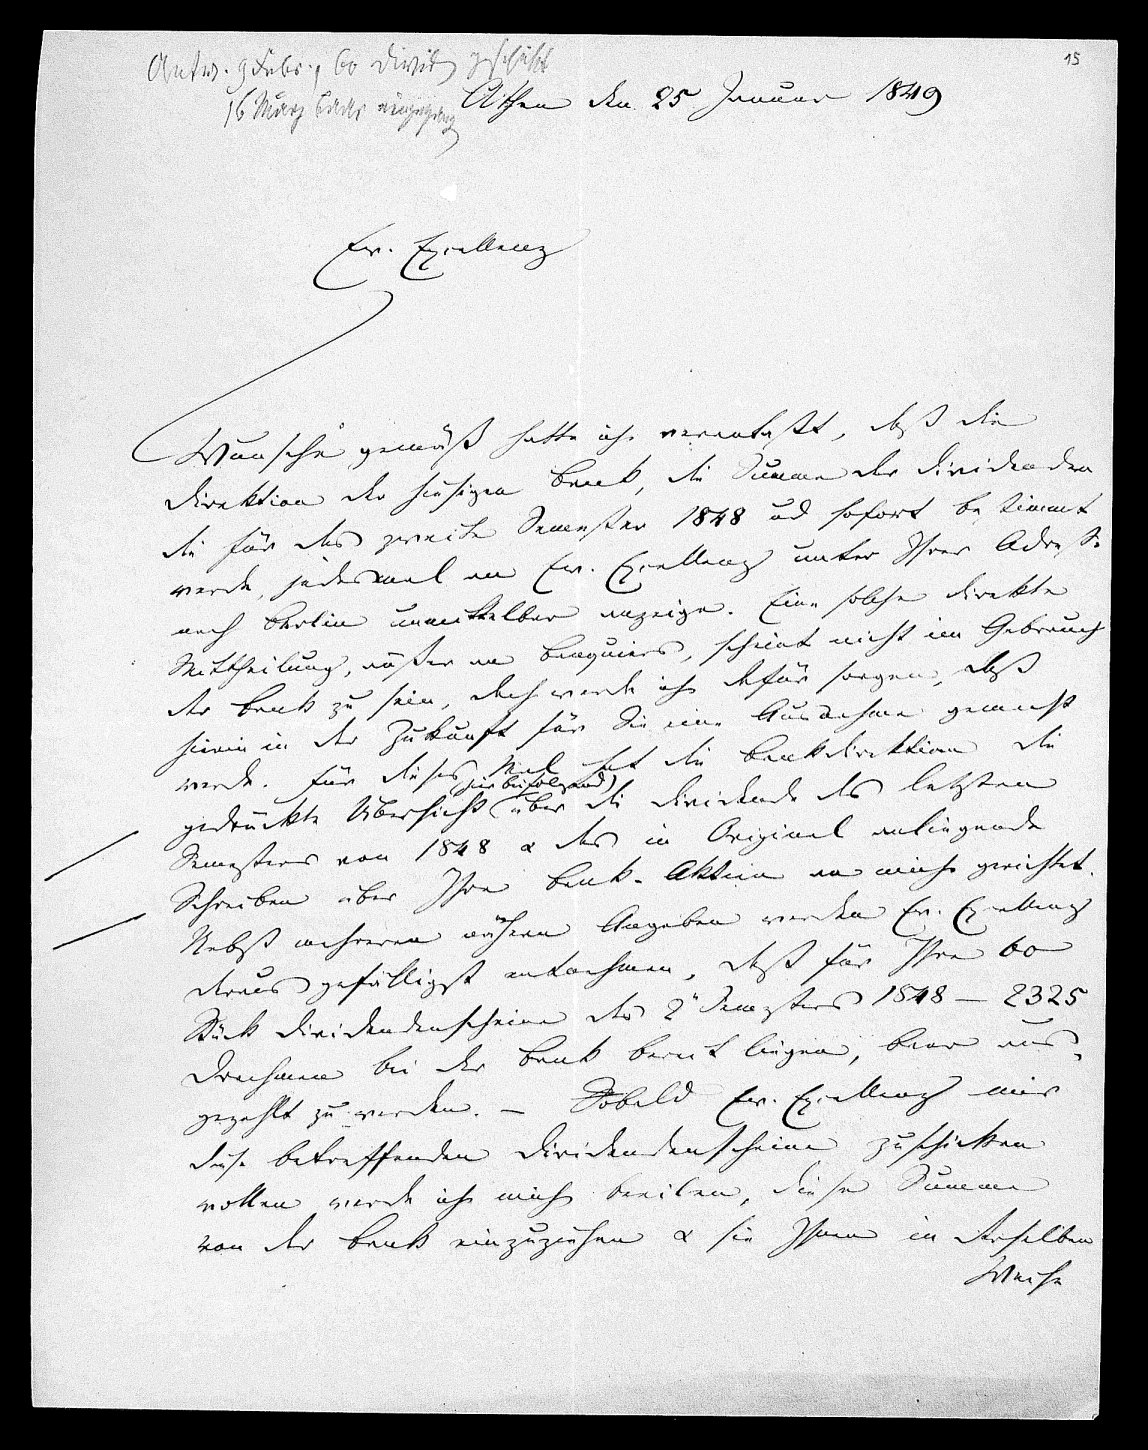 15
Antw. 9 Febr., 60 Divid geschickt
16 März baar eingegang
Athen den 25 Januar 1849
Ew. Excellenz
Wunsche gemäß hatte ich veranlaßt, daß die
Direktion der hiesigen Bank, die Summe der Dividenden
die für das zweite Semester 1848 und sofort bestimmt
werde, jedesmal an Ew. Excellenz unter Ihrer Adresse
nach Berlin unmittelbar anzeige. Eine solche direkte
Mittheilung, außer an Banquiers, scheint nicht im Gebrauch
der Bank zu sein, doch werde ich dafür sorgen, daß
hierin in der Zukunft für Sie eine Ausnahme gemacht
werde. Für dieses Mal hat die Bankdirektion die
gedruckte Übersicht (hierbei folgend) über die Dividende des letzten
Semesters von 1848 & das in Original anliegende
Schreiben über Ihre Bank-Aktien an mich gerichtet.
Nebst mehreren nähern Angaben werden Ew. Excellenz
daraus gefälligst entnehmen, daß für Ihre 60
Stück Dividendenscheine des 2n Semesters 1848 — 2325
Drachmen bei der Bank bereit liegen, baar aus-
gezahlt zu werden. — Sobald Ew. Excellenz mir
diese betreffenden Dividendenscheine zuschicken
wollen werde ich mich beeilen, diese Summe
von der Bank einzuziehen & sie Ihnen in derselben
Weise